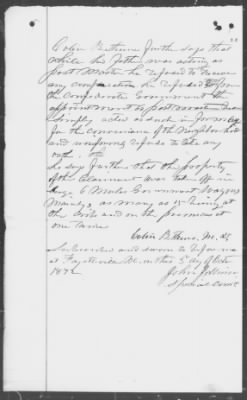 Colin Bethune further says that
while his father was acting as
post Master he refused to receive
any compensation he refused from
the Confederate Government the
appointment of postmaster
simply acted as such
for the convenience of the Neighborhood
and uniformly refused to take any
oath. He
also says further that the property
of the Claimant was taken off in
large 6 Mules Government Wagons
mainly as many as 15 being at
the Crib and on the premises at
one time
Colin Bethune, M. D.
Subscribed and sworn to before me
at Fayetteville N. C. this 5 day of Octr
1872
John
Special Comr.